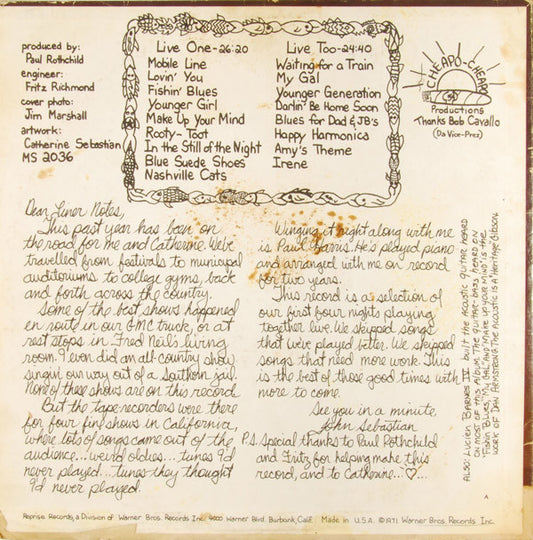 produced by:
Paul Rothchild
engineer:
Fritz Richmond
cover photo:
Jim Marshall
artwork:
Catherine Sebastian
MS 2036
Live One-26:20
Mobile Line
Lovin' You
Fishin' Blues
Younger Girl
Make Up Your Mind
Rooty-Toot
In the Still of the Night
Blue Suede Shoes
Nashville Cats
Live Too-24:40
Waiting for a Train
My Gal
Younger Generation
Darlin' Be Home Soon
Blues for Dad & JB's
Happy Harmonica
Amy's Theme
Irene
CHEAPO-CHEAPO
Productions
Thanks Bob Cavallo
(Da Vice-Prez)
Dear Liner Notes,
This past year has been on
the road for me and Catherine. We've
travelled from festivals to municipal
auditoriums to college gyms, back
and forth across the country.
Some of the best shows happened
en route in our GMC truck, or at
rest stops in Fred Neil's living
room. I even did an all-country show
singin our way out of a Southern jail.
None of these shows are on this record.
But the tape-recorders were there
for four fine shows in California,
where lots of songs came out of the
audience... weird oldies... tunes I'd
never played... tunes they thought
I'd never played.
Winging it right along with me
is Paul Harris. He's played piano
and arranged with me on record
for two years.
This record is a selection of
our first four nights playing
together live. We skipped songs
that we've played better. We skipped
songs that need more work. This
is the best of those good times with
more to come.
See you in a minute,
John Sebastian
P.S. Special thanks to Paul Rothchild
and Fritz for helping make this
record, and to Catherine...♡...
ALSO: LUCIEN BARNES IV built the acoustic guitar heard
on most of this album. The guitar-bass heard on
"Fishin' Blues," "My Gal," and "Make up your Mind" is the
work of Dan Armstrong. The acoustic is a Heritage Gibson.
Reprise Records, a Division of Warner Bros. Records Inc. 4000 Warner Blvd. Burbank, Calif. Made in U.S.A. ©1971 Warner Bros. Records Inc.